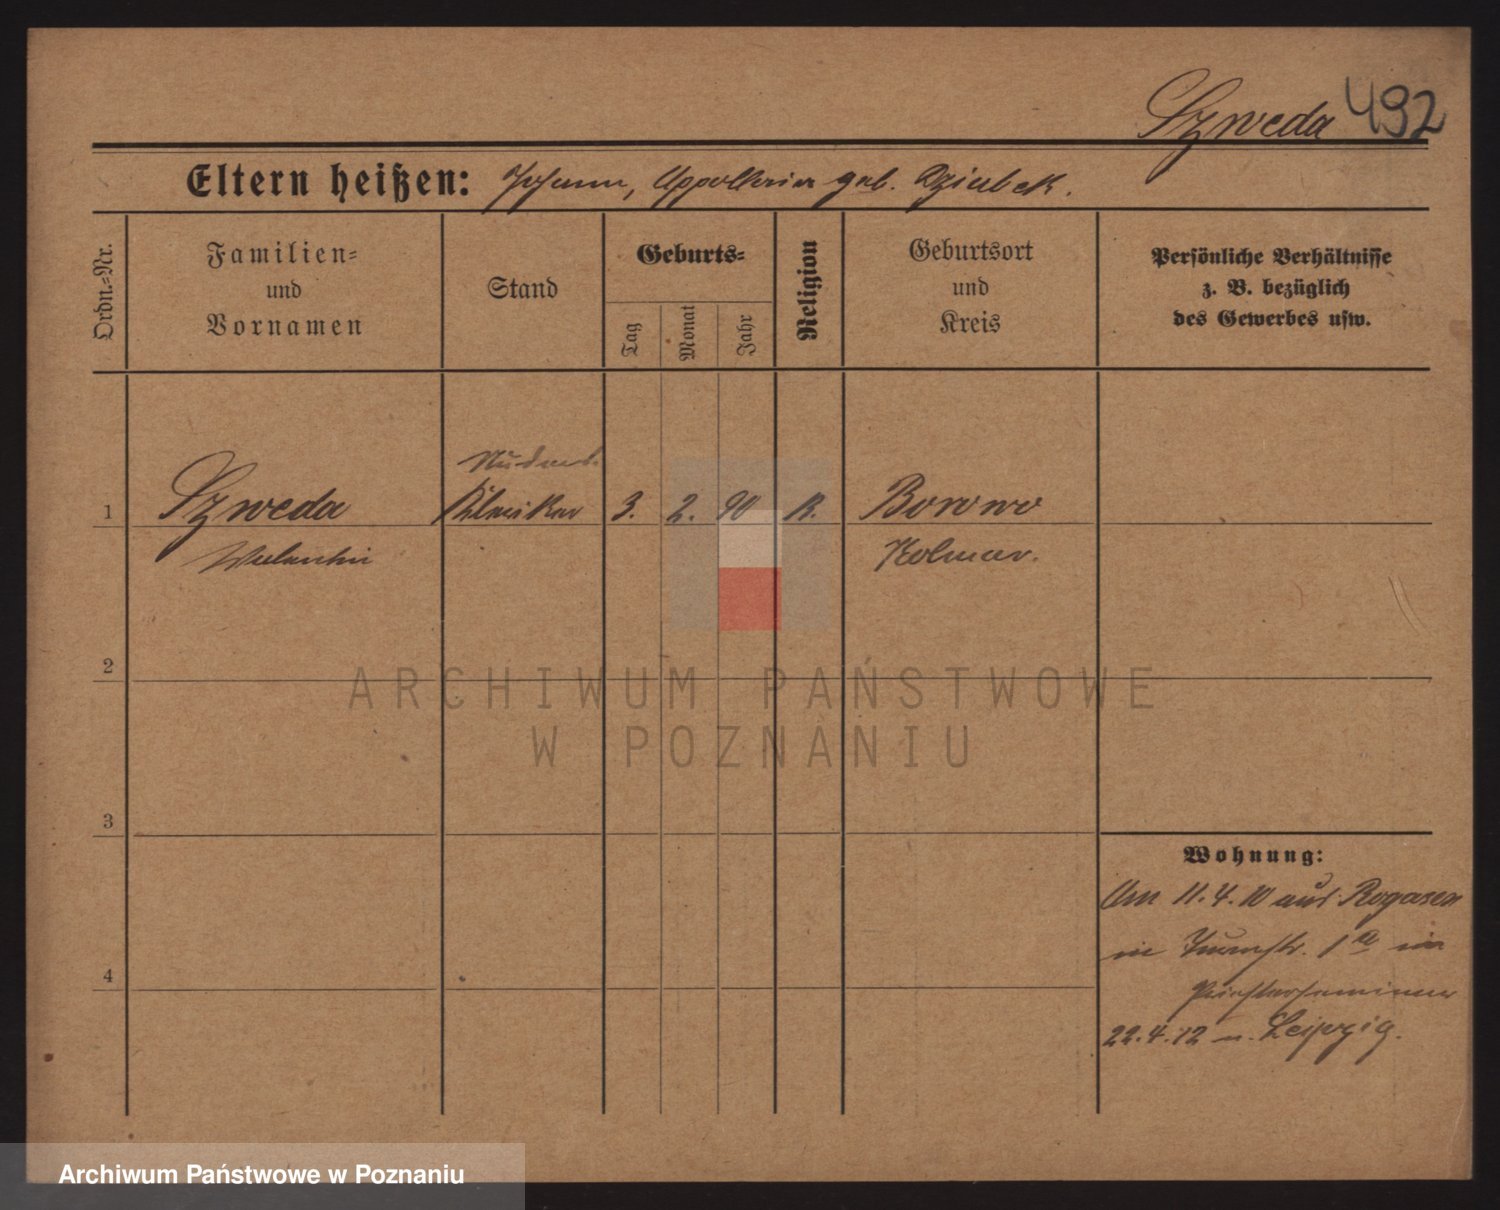 Szweda 492
Eltern heißen: Johann, Appollonia geb. Dziubek.
Ordn.=Nr.
Familien=
und
Vornamen
Stand
Geburts=
Tag
Monat
Jahr
Religion
Geburtsort
und
Kreis
Persönliche Verhältnisse
z. B. bezüglich
des Gewerbes usw.
Student
1 Szweda Kleriker 3. 2. 90 K. Borowo
Valentin Kolmar.
2
ARCHIWUM PAŃSTWOWE
W POZNANIU
3
Wohnung:
Am 11.4.10 aus Rogasen
in Turmstr. 1 im
4
Priesterseminar
22.4.12 n. Leipzig.
Archiwum Państwowe w Poznaniu